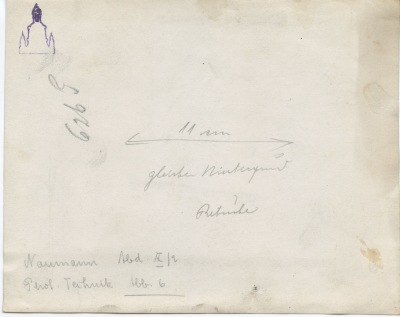 6265
11 cm
gleicher Hintergrund
Retusche
Naumann Abd. IX/2
Phot. Technik Abb. 6